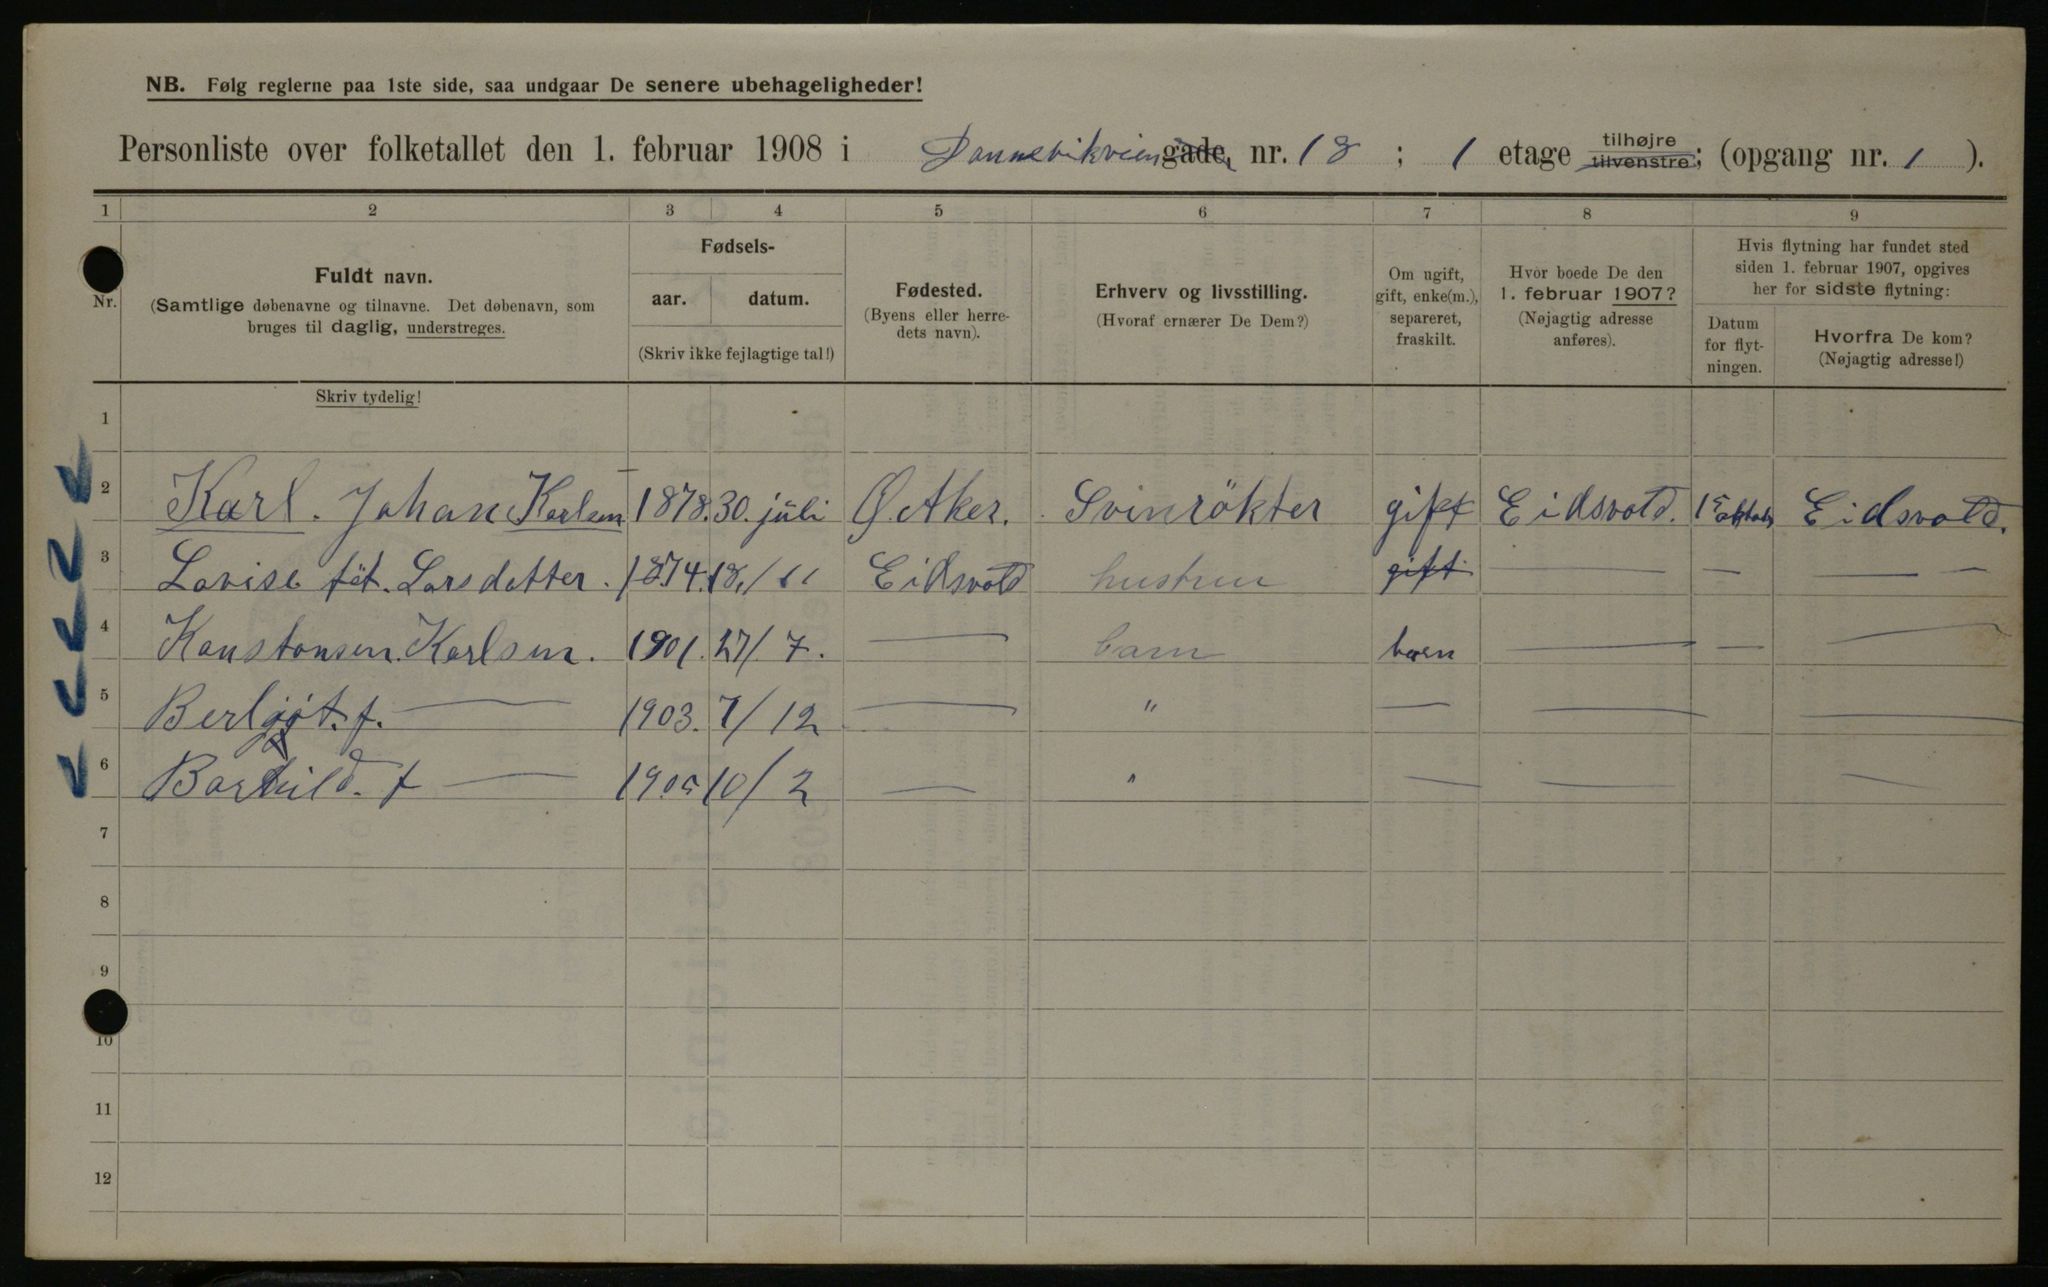 NB. Følg reglerne paa 1ste side, saa undgaar De senere ubehageligheder!
Personliste over folketallet den 1. februar 1908 i Dannevikveien gade, nr. 18 ; 1 etage tilhøjre tilvenstre; (opgang nr. 1 ).
1 2 3 4 5 6 7 8 9
Nr.
Fuldt navn.
(Samtlige døbenavne og tilnavne. Det døbenavn, som
bruges til daglig, understreges.
Fødsels-
aar. datum.
(Skriv ikke fejlagtige tal!)
Fødested.
(Byens eller herre-
dets navn).
Erhverv og livsstilling.
(Hvoraf ernærer De Dem?)
Om ugift,
gift, enke(m.),
separeret,
fraskilt.
Hvor boede De den
1. februar 1907?
(Nøjagtig adresse
anføres).
Hvis flytning har fundet sted
siden 1. februar 1907, opgives
her for sidste flytning:
Datum
for flyt-
ningen.
Hvorfra De kom?
(Nøjagtig adresse!)
Skriv tydelig!
1
2 Karl. Johan Karlsen 1878. 30. juli Ø. Aker. Svinrökter gift Eidsvold. 15 oktob Eidsvold.
3 Lovise föt. Larsdatter. 1874. 18/11 Eidsvold hustru gift — — —
4 Konstansen. Karlsen. 1901. 27/7. — barn barn — — —
5 Berljot. f. — 1903. 7/12 — " — — —
6 Borhild. f — 1905 10/2 — " — — —
7
8
9
10
11
12